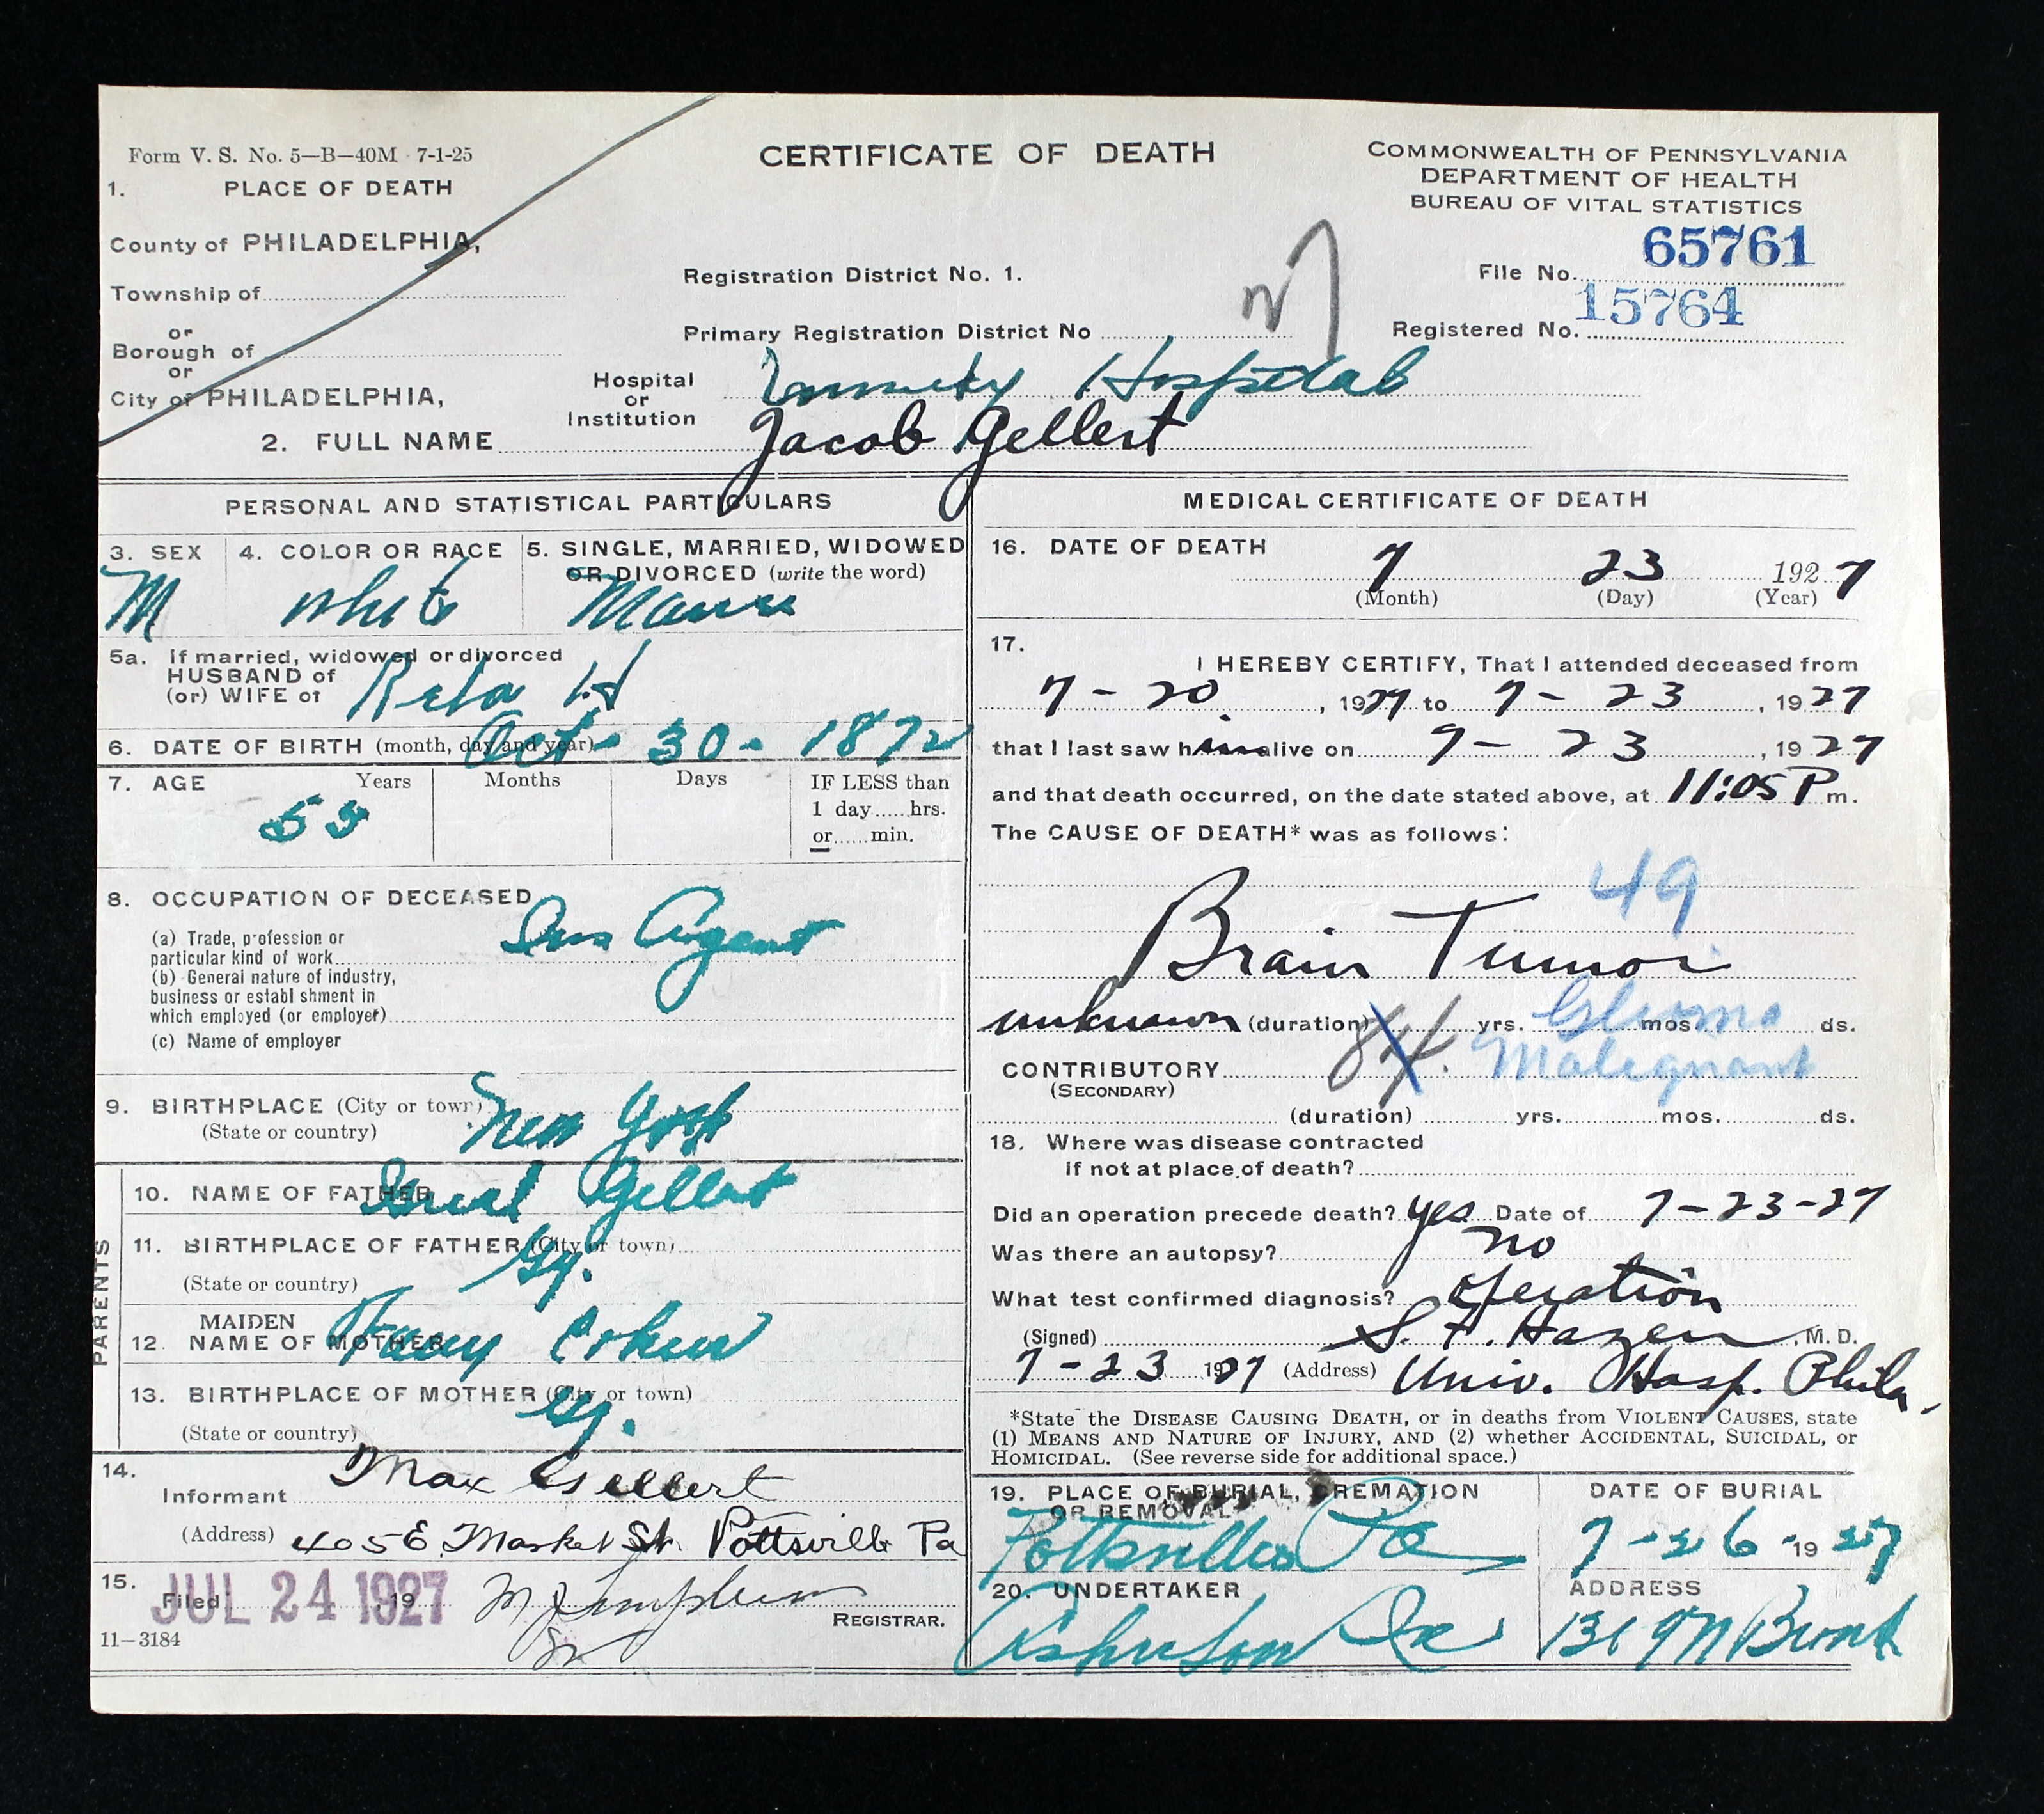 Form V. S. No. 5—B—40M 7-1-25
CERTIFICATE OF DEATH
COMMONWEALTH OF PENNSYLVANIA
DEPARTMENT OF HEALTH
BUREAU OF VITAL STATISTICS
1. PLACE OF DEATH
County of PHILADELPHIA,
Township of
or
Borough of
or
City of PHILADELPHIA,
Registration District No. 1.
Primary Registration District No
File No. 65761
Registered No. 15764
Hospital or Institution Hospital
2. FULL NAME Jacob Gellert
PERSONAL AND STATISTICAL PARTICULARS
3. SEX M
4. COLOR OR RACE White
5. SINGLE, MARRIED, WIDOWED
OR DIVORCED (write the word)
5a. If married, widowed or divorced
HUSBAND of
(or) WIFE of Reba H
6. DATE OF BIRTH (month, day and year) Oct - 30 - 1872
7. AGE Years Months Days IF LESS than
1 day.....hrs.
or......min.
8. OCCUPATION OF DECEASED
(a) Trade, profession or
particular kind of work Ins Agent
(b) General nature of industry,
business or establishment in
which employed (or employer)
(c) Name of employer
9. BIRTHPLACE (City or town)
(State or country) New York
PARENTS
10. NAME OF FATHER Gellert
11. BIRTHPLACE OF FATHER (City or town)
(State or country)
12. MAIDEN
NAME OF MOTHER Cohen
13. BIRTHPLACE OF MOTHER (City or town)
(State or country)
14.
Informant Max Gellert
(Address) 405 E. Market St. Pottsville Pa
15.
Filed JUL 24 1927, 19
REGISTRAR.
11—3184
MEDICAL CERTIFICATE OF DEATH
16. DATE OF DEATH
7 23 1927
(Month) (Day) (Year)
17.
I HEREBY CERTIFY, That I attended deceased from
7 - 20, 1927 to 7 - 23, 1927
that I last saw him alive on 7 - 23, 1927
and that death occurred, on the date stated above, at 11:05 P m.
The CAUSE OF DEATH* was as follows:
49
Brain Tumor
unknown (duration) yrs. mos. ds.
Glioma
CONTRIBUTORY Malignant
(SECONDARY)
(duration) yrs. mos. ds.
18. Where was disease contracted
if not at place of death?
Did an operation precede death? yes Date of 7-23-27
Was there an autopsy? no
What test confirmed diagnosis? operation
(Signed) Hazen, M. D.
7 - 23 1927 (Address) Univ. Hosp. Phila.
*State the DISEASE CAUSING DEATH, or in deaths from VIOLENT CAUSES, state
(1) MEANS AND NATURE OF INJURY, AND (2) whether ACCIDENTAL, SUICIDAL, or
HOMICIDAL. (See reverse side for additional space.)
19. PLACE OF BURIAL, CREMATION
OR REMOVAL
Pottsville Pa
DATE OF BURIAL
7 - 26 - 1927
20. UNDERTAKER
ADDRESS